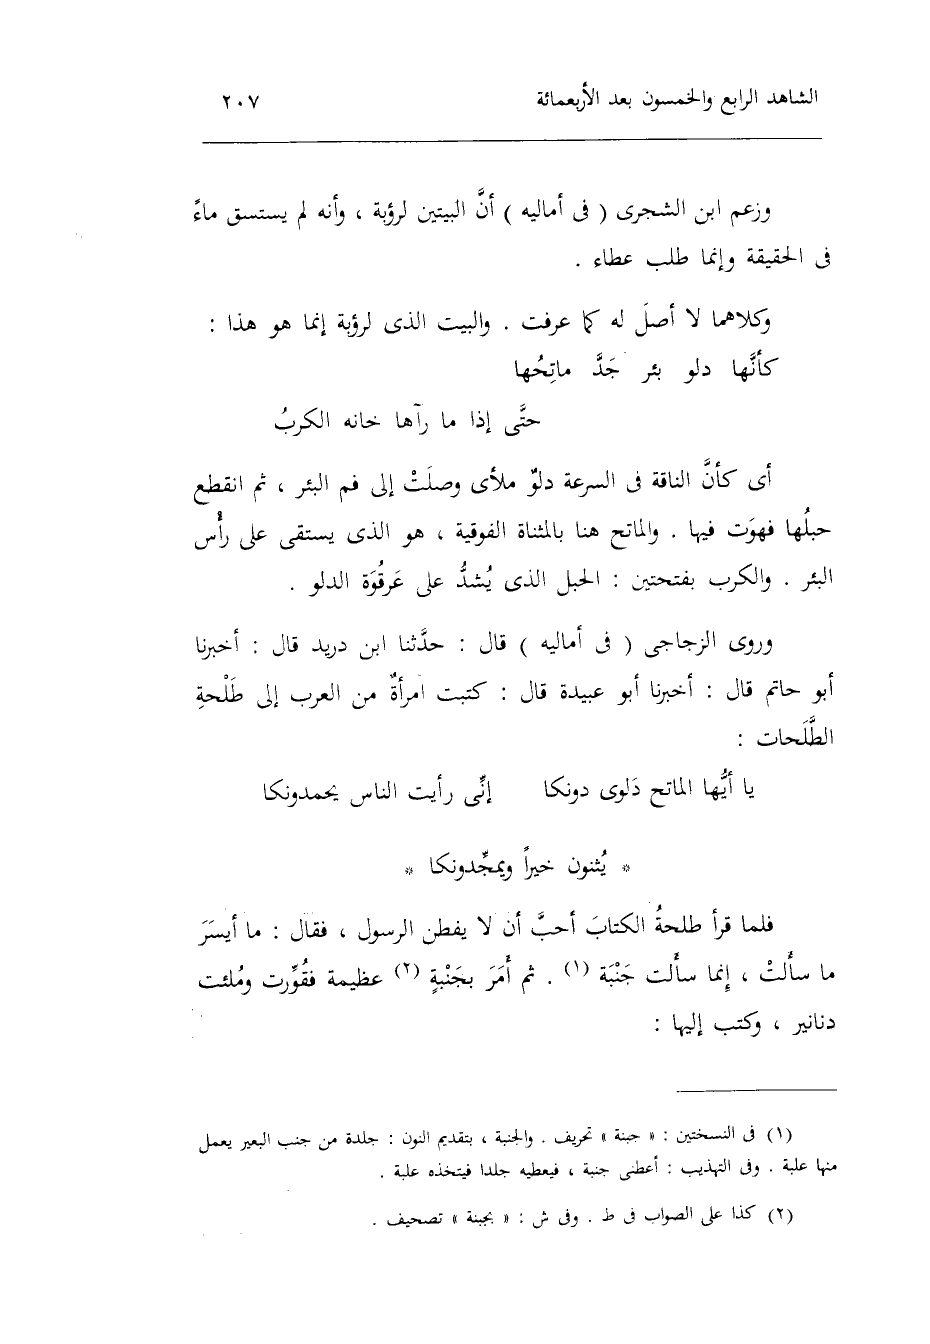 الشاهد الرابع والخمسون بعد الأربعمائة ٢٠٧
وزعم ابن الشجرى ( فى أماليه ) أنَّ البيتين لرؤبة ، وأنه لم يستسق ماءً
فى الحقيقة وإنما طلب عطاء .
وكلاهما لا أصلَ له كما عرفت . والبيت الذى لرؤبة إنما هو هذا :
كأنَّها دلو بئر جَدَّ ماتِحُها
حتَّى إذا ما رآها خانه الكربُ
أى كأنَّ الناقة فى السرعة دلوٌ ملأى وصلَتْ إلى فم البئر ، ثم انقطع
حبلُها فهوَت فيها . والماتح هنا بالمثناة الفوقية ، هو الذى يستقى على رأْس
البئر . والكرب بفتحتين : الحبل الذى يُشدُّ على عَرقُوَة الدلو .
وروى الزجاجى ( فى أماليه ) قال : حدَّثنا ابن دريد قال : أخبرنا
أبو حاتم قال : أخبرنا أبو عبيدة قال : كتبت امرأةٌ من العرب إلى طَلْحةِ
الطَّلَحات :
يا أيُّها الماتح دَلوى دونكا إنِّى رأيت الناس يحمدونكا
* يُثنون خيراً ويمجِّدونكا *
فلما قرأ طلحةُ الكتابَ أحبَّ أن لا يفطن الرسول ، فقال : ما أيسَرَ
ما سأَلتْ ، إنما سأَلت جَنْبَة (١) . ثم أَمَرَ بجَنْبةٍ (٢) عظيمة فقُوِّرت ومُلئت
دنانير ، وكتب إليها :
(١) فى النسختين : « جبنة » تحريف . والجنبة ، بتقديم النون : جلدة من جنب البعير يعمل
منها علبة . وفى التهذيب : أعطنى جنبة ، فيعطيه جلدا فيتخذه علبة .
(٢) كذا على الصواب فى ط . وفى ش : « بجبنة » تصحيف .